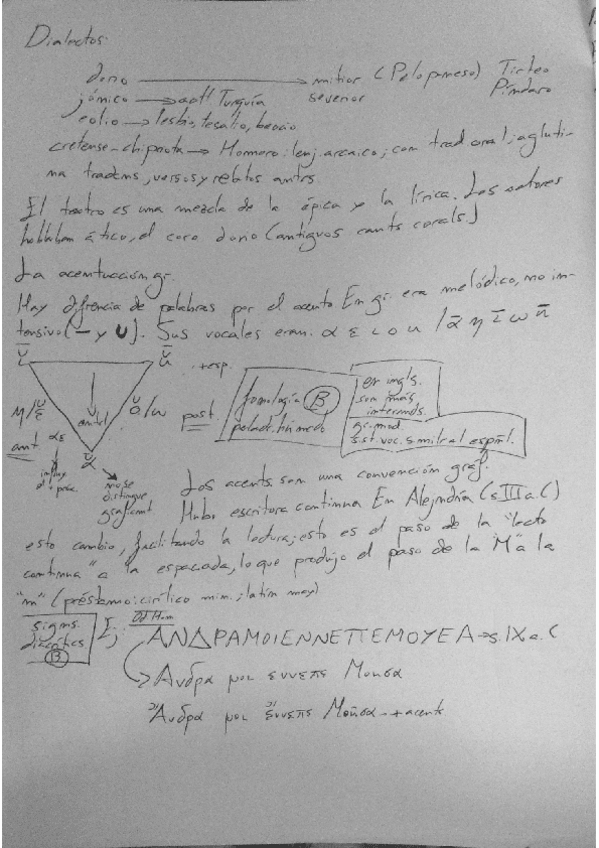 Dialectos:
dorio → mitior (Peloponeso) Tirteo
jónico → actl Turquía severior Píndaro
eolio → lesbio, tesalio, beocio
cretense-chipriota → Hommero: lenj. arcaico; con trad. oral; agluti-
na tradcns, versos y relatos antrs.
El teatro es una mezcla de la épica y la lírica. Los actores
hablaban ático, el coro dorio (antiguos cants corals.)
La acentucción gr.
Hay difrencia de palabras por el acento En gr. era melódico, no in-
tensivo (– y U). Sus vocales eran: α ε ι ο υ / ᾱ η ῑ ω ῡ
+ resp.
ant. post.
fonología (B)
en ingls.
son más
intermds.
gr. mod.
sist. voc. similr al espñl.
no se
distingue
graficmt
Los acents. son una convención gráf.
Hubo escritora continua En Alejndría (s III a. C)
esto cambio, facilitando la lectura; esto es el paso de la "lectio
continua" a la espaciada, lo que produjo el paso de la "M" a la
"m" (préstamo: cirílico min.; latín may)
signs.
diacrítics
(B)
Od Hom
ΑΝΔΡΑΜΟΙΕΝΝΕΠΕΜΟΥΣΑ → s. IX a. C
Ανδρα μοι εννεπε Μουσα
Ἄνδρα μοι ἔννεπε Μοῦσα → + acento